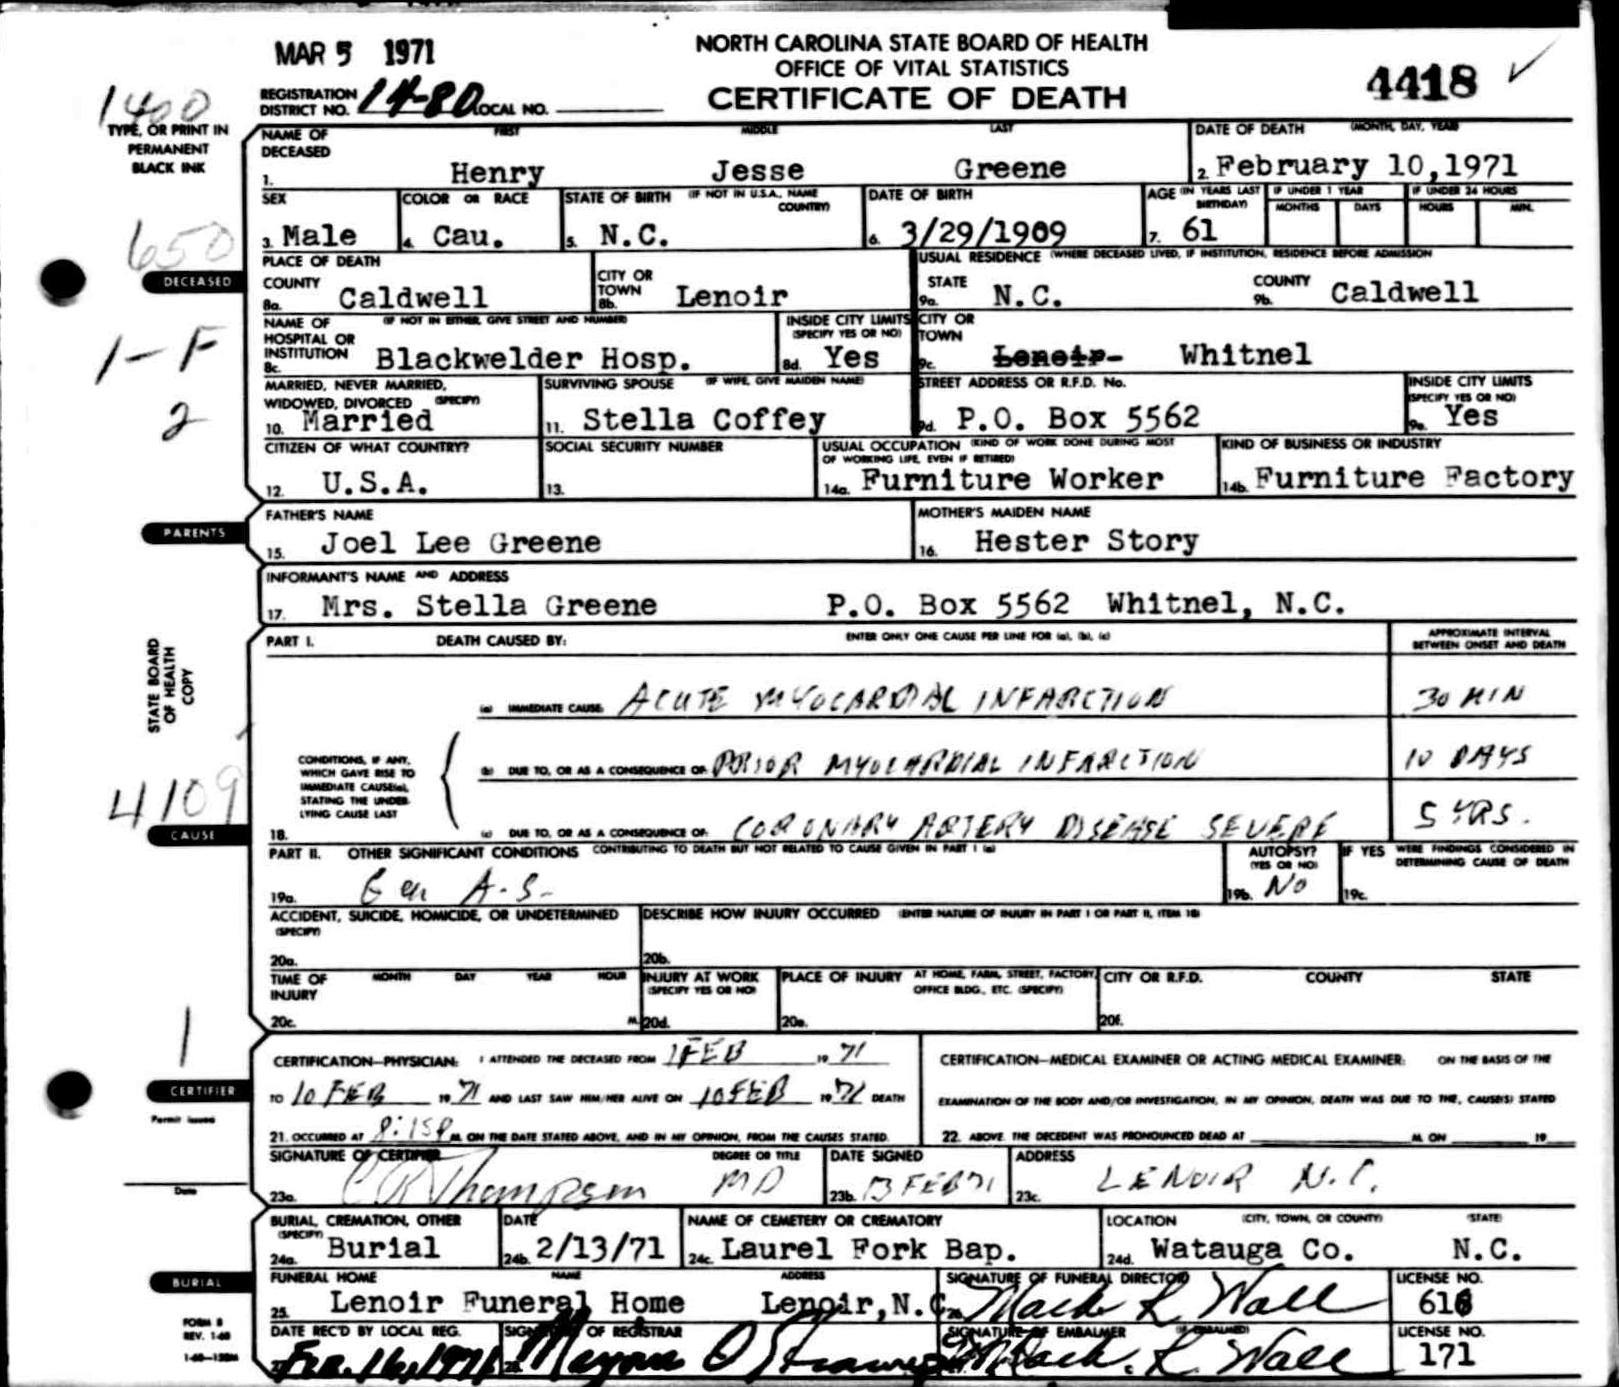 MAR 5 1971
NORTH CAROLINA STATE BOARD OF HEALTH
OFFICE OF VITAL STATISTICS
CERTIFICATE OF DEATH
4418 ✓
1400
REGISTRATION DISTRICT NO. 14-80 LOCAL NO.
TYPE, OR PRINT IN PERMANENT BLACK INK
NAME OF DECEASED FIRST MIDDLE LAST
1. Henry Jesse Greene
DATE OF DEATH (MONTH, DAY, YEAR)
2. February 10,1971
650
SEX
3. Male
COLOR OR RACE
4. Cau.
STATE OF BIRTH (IF NOT IN U.S.A., NAME COUNTRY)
5. N.C.
DATE OF BIRTH
6. 3/29/1909
AGE (IN YEARS LAST BIRTHDAY)
7. 61
IF UNDER 1 YEAR
MONTHS DAYS
IF UNDER 24 HOURS
HOURS MIN.
DECEASED
PLACE OF DEATH
COUNTY
8a. Caldwell
CITY OR TOWN
8b. Lenoir
USUAL RESIDENCE (WHERE DECEASED LIVED, IF INSTITUTION, RESIDENCE BEFORE ADMISSION)
STATE
9a. N.C.
COUNTY
9b. Caldwell
1-F
NAME OF HOSPITAL OR INSTITUTION (IF NOT IN EITHER, GIVE STREET AND NUMBER)
8c. Blackwelder Hosp.
INSIDE CITY LIMITS (SPECIFY YES OR NO)
8d. Yes
CITY OR TOWN
9c. Lenoir Whitnel
2
MARRIED, NEVER MARRIED, WIDOWED, DIVORCED (SPECIFY)
10. Married
SURVIVING SPOUSE (IF WIFE, GIVE MAIDEN NAME)
11. Stella Coffey
STREET ADDRESS OR R.F.D. No.
9d. P.O. Box 5562
INSIDE CITY LIMITS (SPECIFY YES OR NO)
9e. Yes
CITIZEN OF WHAT COUNTRY?
12. U.S.A.
SOCIAL SECURITY NUMBER
13.
USUAL OCCUPATION (KIND OF WORK DONE DURING MOST OF WORKING LIFE, EVEN IF RETIRED)
14a. Furniture Worker
KIND OF BUSINESS OR INDUSTRY
14b. Furniture Factory
PARENTS
FATHER'S NAME
15. Joel Lee Greene
MOTHER'S MAIDEN NAME
16. Hester Story
INFORMANT'S NAME AND ADDRESS
17. Mrs. Stella Greene P.O. Box 5562 Whitnel, N.C.
STATE BOARD OF HEALTH COPY
PART I. DEATH CAUSED BY: ENTER ONLY ONE CAUSE PER LINE FOR (a), (b), (c)
APPROXIMATE INTERVAL BETWEEN ONSET AND DEATH
(a) IMMEDIATE CAUSE: ACUTE MYOCARDIAL INFARCTION 30 MIN
CONDITIONS, IF ANY, WHICH GAVE RISE TO IMMEDIATE CAUSE(a), STATING THE UNDERLYING CAUSE LAST
(b) DUE TO, OR AS A CONSEQUENCE OF: PRIOR MYOCARDIAL INFARCTION 10 DAYS
4109
CAUSE
18. (c) DUE TO, OR AS A CONSEQUENCE OF: CORONARY ARTERY DISEASE SEVERE 5 YRS.
PART II. OTHER SIGNIFICANT CONDITIONS CONTRIBUTING TO DEATH BUT NOT RELATED TO CAUSE GIVEN IN PART I (a)
19a. Gen A.S.
AUTOPSY? (YES OR NO)
19b. No
IF YES WERE FINDINGS CONSIDERED IN DETERMINING CAUSE OF DEATH
19c.
ACCIDENT, SUICIDE, HOMICIDE, OR UNDETERMINED (SPECIFY)
20a.
DESCRIBE HOW INJURY OCCURRED (ENTER NATURE OF INJURY IN PART I OR PART II, ITEM 18)
20b.
TIME OF INJURY MONTH DAY YEAR HOUR
20c. M.
INJURY AT WORK (SPECIFY YES OR NO)
20d.
PLACE OF INJURY AT HOME, FARM, STREET, FACTORY, OFFICE BLDG., ETC. (SPECIFY)
20e.
CITY OR R.F.D. COUNTY STATE
20f.
1
CERTIFIER
Permit issued
Date
CERTIFICATION—PHYSICIAN: I ATTENDED THE DECEASED FROM 1 FEB 19 71
TO 10 FEB 19 71 AND LAST SAW HIM/HER ALIVE ON 10 FEB 19 71 DEATH
21. OCCURRED AT 8:15P M. ON THE DATE STATED ABOVE, AND IN MY OPINION, FROM THE CAUSES STATED.
CERTIFICATION—MEDICAL EXAMINER OR ACTING MEDICAL EXAMINER: ON THE BASIS OF THE
EXAMINATION OF THE BODY AND/OR INVESTIGATION, IN MY OPINION, DEATH WAS DUE TO THE, CAUSE(S) STATED
22. ABOVE. THE DECEDENT WAS PRONOUNCED DEAD AT M. ON 19
SIGNATURE OF CERTIFIER DEGREE OR TITLE
23a. Thompson MD
DATE SIGNED
23b. 13 FEB 71
ADDRESS
23c. LENOIR N.C.
BURIAL, CREMATION, OTHER (SPECIFY)
24a. Burial
DATE
24b. 2/13/71
NAME OF CEMETERY OR CREMATORY
24c. Laurel Fork Bap.
LOCATION (CITY, TOWN, OR COUNTY) (STATE)
24d. Watauga Co. N.C.
BURIAL
FUNERAL HOME NAME ADDRESS
25. Lenoir Funeral Home Lenoir,N.C.
SIGNATURE OF FUNERAL DIRECTOR
Mack R Wall
LICENSE NO.
616
FORM 8
REV. 1-68
DATE REC'D BY LOCAL REG.
Feb. 16, 1971
SIGNATURE OF REGISTRAR
SIGNATURE OF EMBALMER (IF EMBALMED)
Mack. R. Wall
LICENSE NO.
171